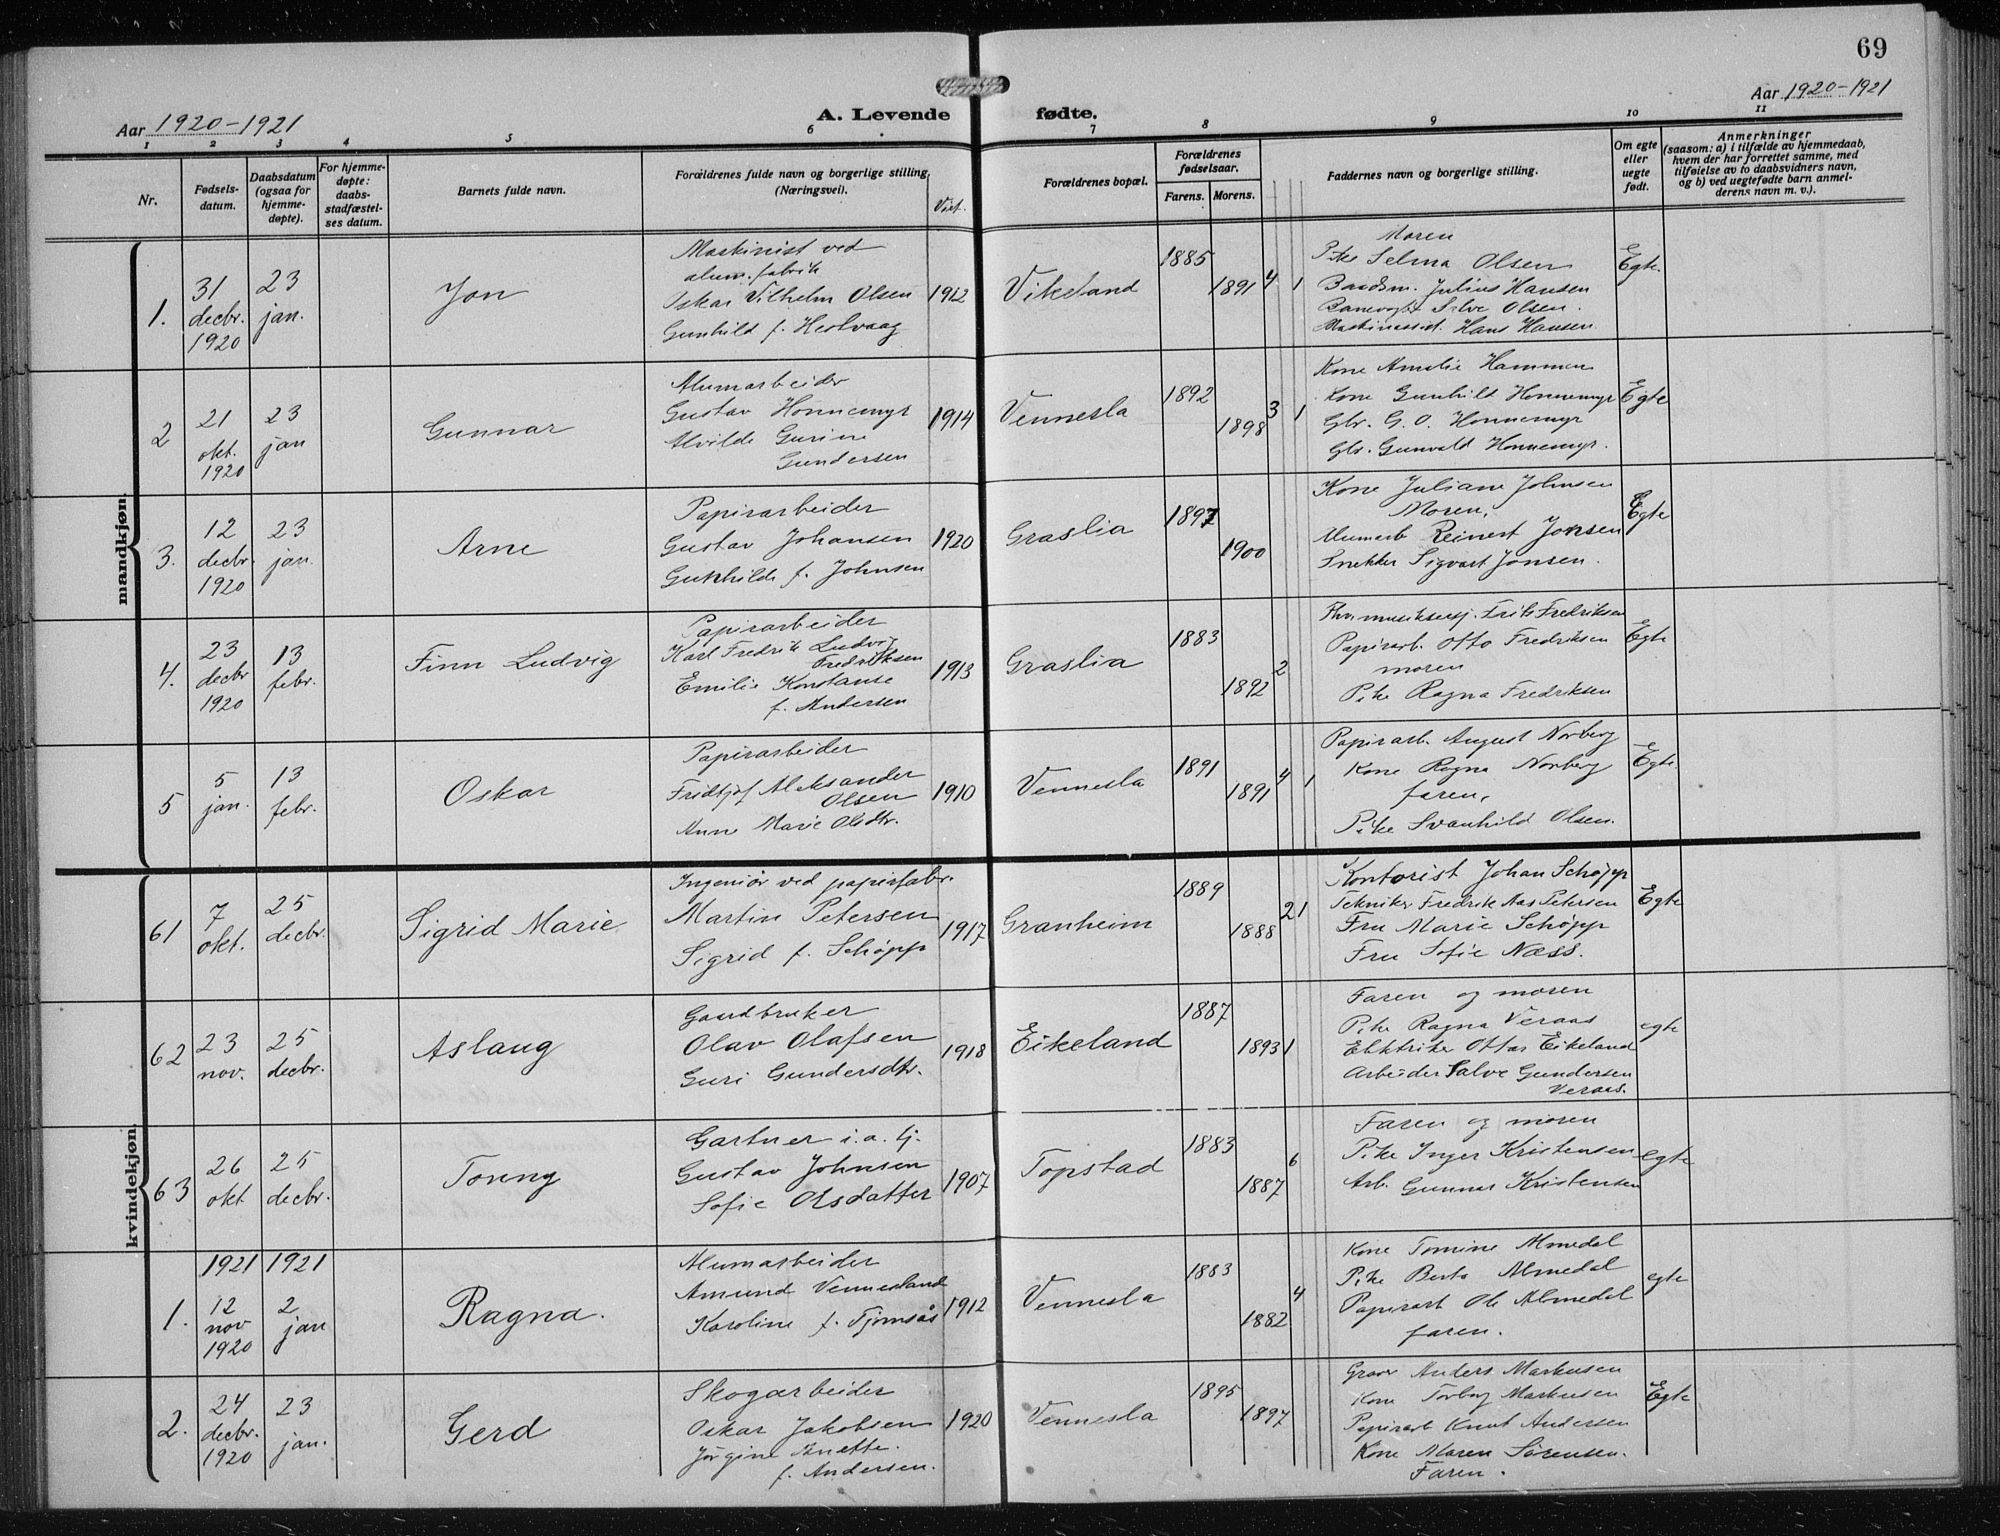 69
Aar 1920-1921
A. Levende fødte.
Aar 1920-1921
1 2 3 4 5 6 7 8 9 10 11
Nr.
Fødsels-
datum.
Daabsdatum
(ogsaa for
hjemme-
døpte).
For hjemme-
døpte:
daabs-
stadfæstel-
ses datum.
Barnets fulde navn.
Forældrenes fulde navn og borgerlige stilling
(Næringsvei).
Viet.
Forældrenes bopæl.
Forældrenes
fødselsaar.
Farens. Morens.
Faddernes navn og borgerlige stilling.
Om egte
eller
uegte
født.
Anmerkninger
(saasom: a) i tilfælde av hjemmedaab,
hvem der har forrettet samme, med
tilføielse av to daabsvidners navn,
og b) ved uegtefødte barn anmel-
derens navn m. v.).
mandkjøn.
1.
31
decbr.
1920
23
jan.
Jon
Maskinist ved
alum.fabrik
Oskar Vilhelm Olsen
Gunhild f. Hestvaag
1912
Vikeland
1885
1891
4 1
Moren
Pike Selma Olsen
Baadsm. Julius Hansen
Banevogter Salve Olsen.
Maskinassist. Hans Hansen.
Egte.
2
21
okt.
1920
23
jan
Gunnar
Alumarbeider
Gustav Honnemyr
Alvilde Gurine
Gundersen
1914
Vennesla
1892
1898
3 1
Kone Amalie Hammen
Kone Gunhild Honnemyr
Gbr. G. O. Honnemyr
Gbr. Gunvald Honnemyr.
Egte
3.
12
decbr.
1920
23
jan.
Arne
Papirarbeider
Gustav Johansen
Gunhilde f. Johnsen
1920
Graslia
1897
1900
Kone Juliane Johnsen
Moren,
Alumarb Reinert Jonsen
Snekker Sigvart Jonsen.
Egte
4.
23
decbr
1920
13
febr.
Finn Ludvig
Papirarbeider
Karl Fredrik Ludvig
Fredriksen
Emilie Konstanse
f. Andersen
1913
Graslia
1883
1892
2
Frits Fredriksen
Papirarb. Otto Fredriksen
moren
Pike Ragna Fredriksen
Egte
5
5
jan.
13
febr.
Oskar
Papirarbeider
Fridtjof Aleksander
Olsen
Anne Marie Olsdtr.
1910
Vennesla
1891
1891
4 1
Papirarb. August Norberg
Kone Ragna Norberg
faren,
Pike Svanhild Olsen.
Egte.
kvindekjøn.
61
7
okt.
25
decbr.
Sigrid Marie
Ingeniør ved papirfabr.
Martin Petersen
Sigrid f. Schøpp
1917
Granheim
1889
1888
2 1
Kontorist Johan Schøpp
Tekniker Fredrik Aas Petersen
Fru Marie Schøpp
Fru Sofie Næss.
Egte
62
23
nov.
25
decbr.
Aslaug
Gaardbruker
Olav Olafsen
Guri Gundersdtr.
1918
Eikeland
1887
1893
1
Faren og moren
Pike Ragna Veraas
Elektriker Ottar Eikeland
Arbeider Salve Gundersen
Veraas.
egte
63
26
okt
25
decbr.
Toreny
Gartner i. a. tj.
Gustav Johnsen
Sofie Olsdatter
1907
Topstad
1883
1887
6
Faren og moren
Pike Inger Kristensen
Arb. Gunnar Kristensen
egte
1921 1921
1.
12
nov
1920
2
jan
Ragna.
Alumarbeider
Amund Vennesland
Karoline f. Tjomsås
1912
Vennesla
1883
1882
4
Kone Tomine Almedal
Pike Berta Almedal
Papirarb Ole Almedal
faren.
egte
2.
24
decbr.
1920
23
jan.
Gerd
Skogarbeider
Oskar Jakobsen
Jørgine Anette
f. Andersen.
1920
Vennesla
1895
1897
Graver Anders Markusen
Kone Torborg Markusen
Papirarb Knut Andersen
Kone Maren Sørensen.
Faren.
Egte